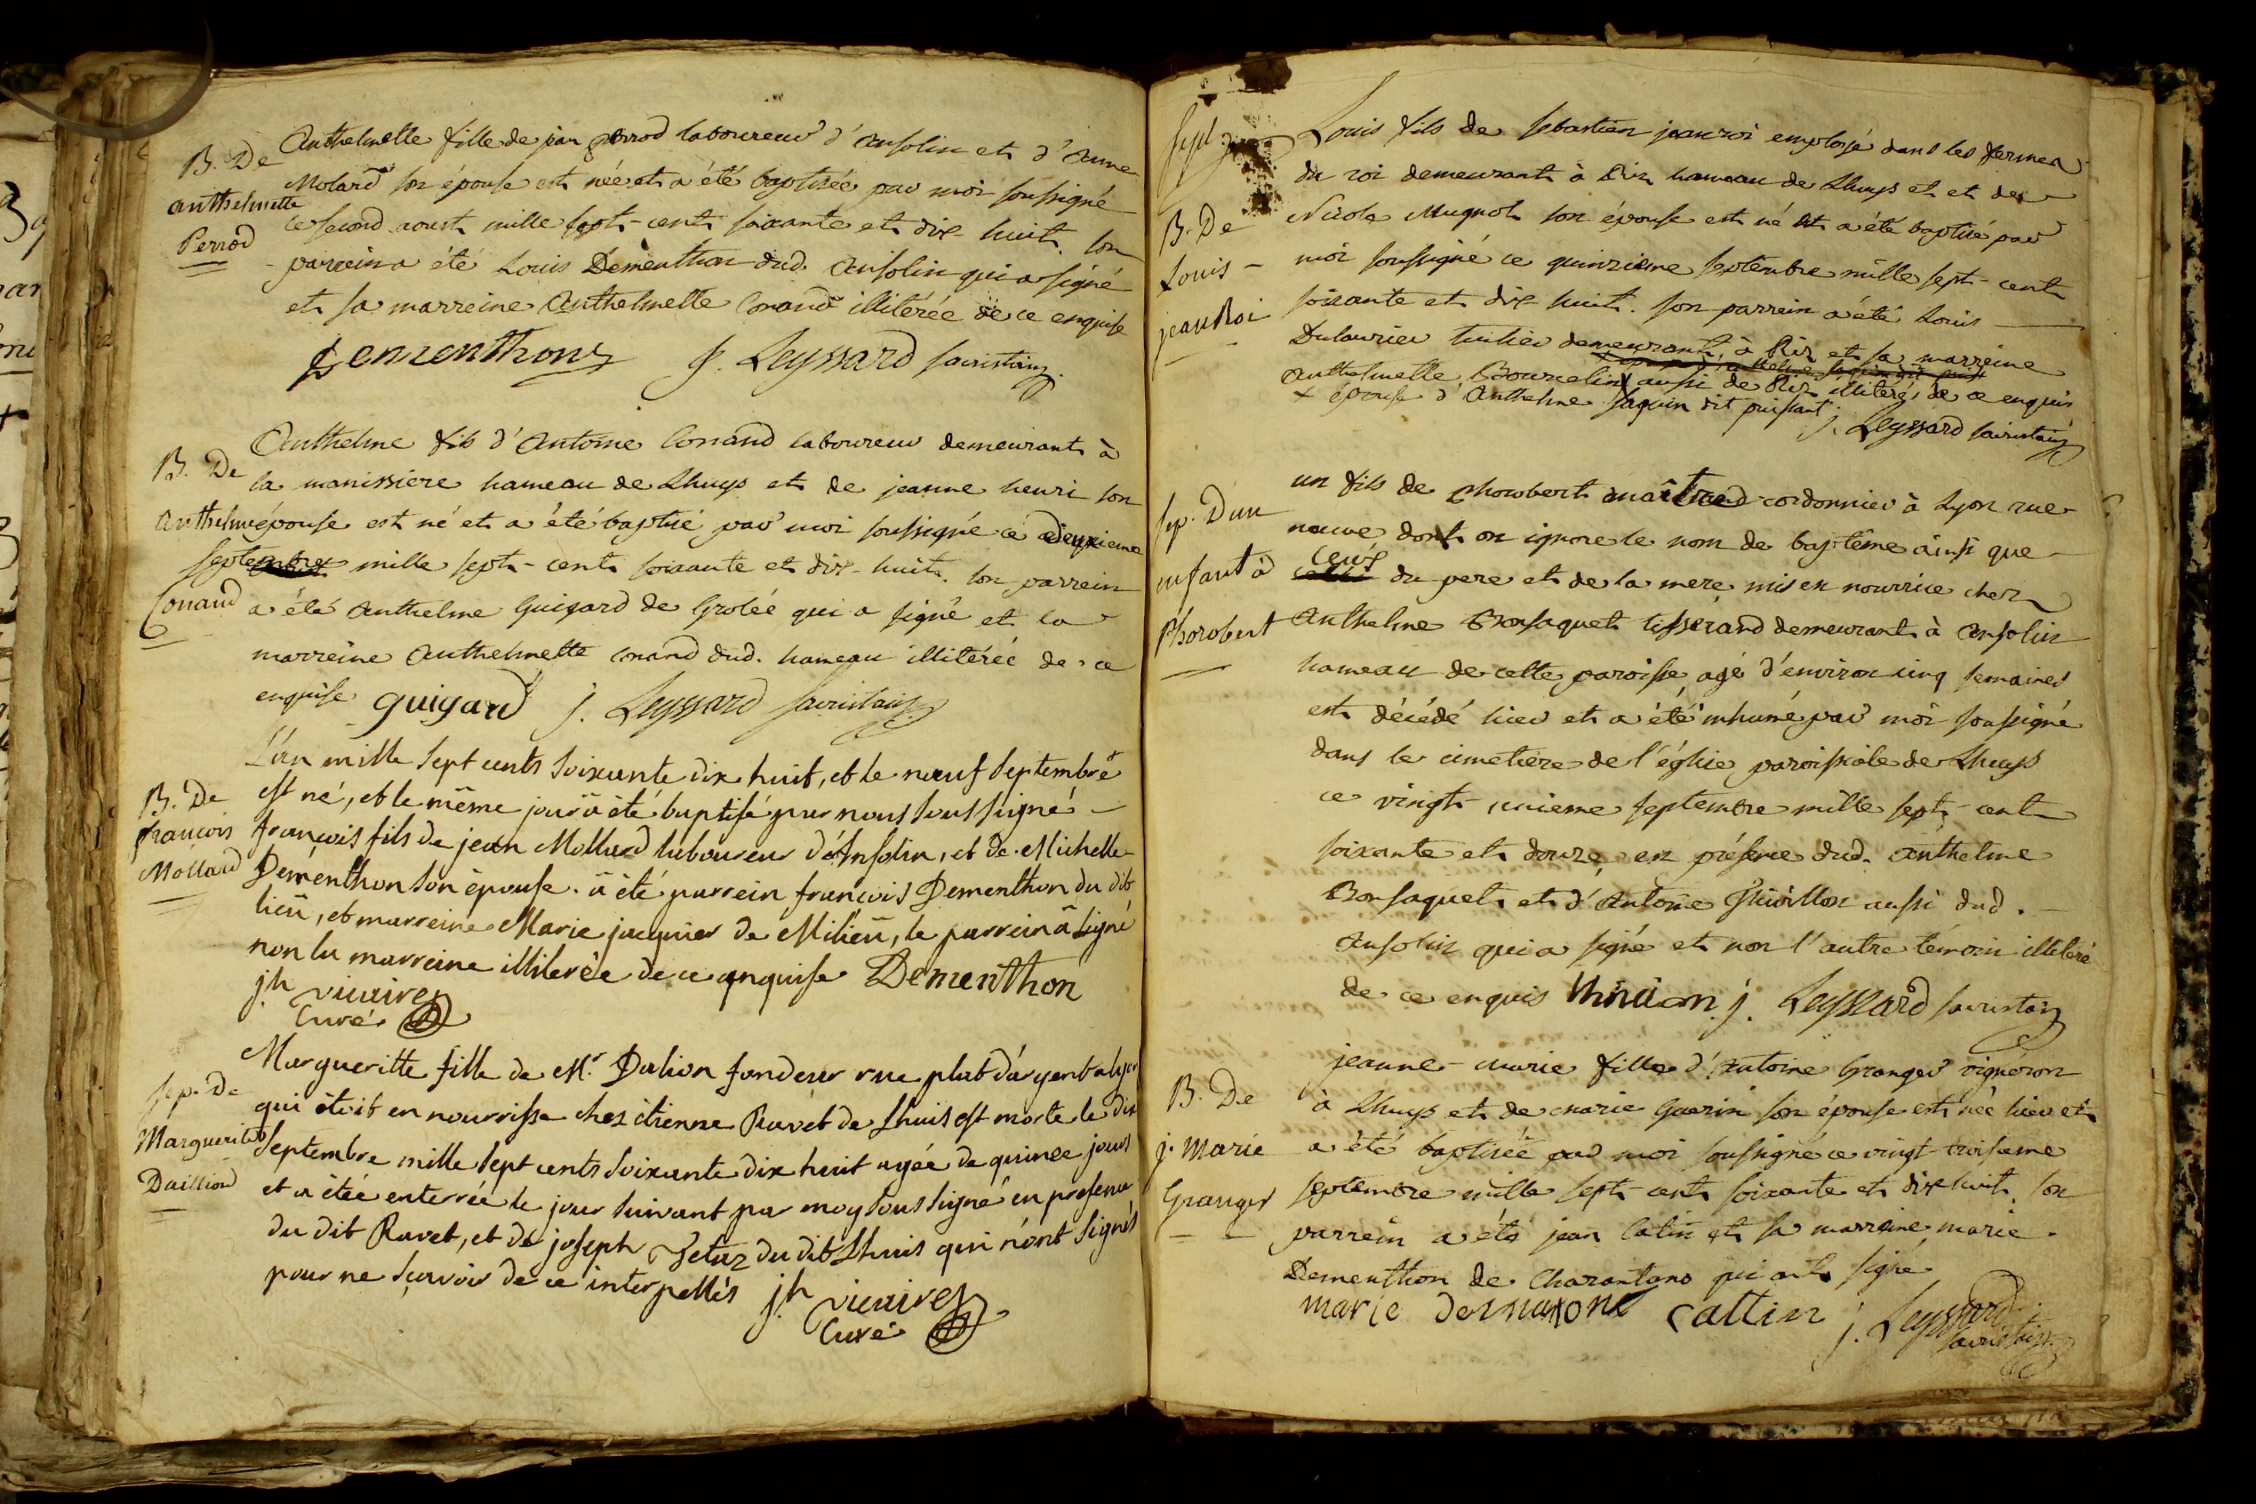 B. De
anthelmette
Perrod
Anthelmette fille de jean perrod laboureur d'ansolin et d'anne
Molard son épouse est née et a été baptisée par moi soussigné
ce second aoust mille sept-cent soixante et dix-huit. son
parrein a été Louis Dementhon dud. ansolin qui a signé
et sa marreine Anthelmette Conand illitérée de ce enquise
Dementhon J. Leyssard sacristain
B. De
Anthelme
Conand
Anthelme fils d'Antoine Conand laboureur demeurant à
la manissiere hameau de Lhuys et de jeanne henri son
épouse est né et a été baptisé par moi soussigné ce deuxieme
septembre mille sept-cent soixante et dix-huit. son parrein
a été Anthelme Guigard de Grolée qui a signé et la
marreine Anthelmette Conand dud. hameau illitérée de ce
enquise guigard j. Leyssard sacristain
B. De
françois
Mollard
L'an mille sept cents soixante dix huit, et le neuf septembre
est né, et le même jour a été baptisé par nous soussigné
françois fils de jean Mollard laboureur d'Ansolin, et de Michelle
Dementhon son épouse. a été parrein françois Dementhon du dit
lieu, et marreine Marie jacquier de Milieu, le parrein a signé
non la marreine illiterée de ce enquise Dementhon
jh vicaire
Curé
sep. De
Margueritte
Daillion
Margueritte fille de Mr. Dalion fondeur rue plat d'argent a lyon
qui étoit en nourrisse chez étienne Ravet de Lhuis est morte le dix
septembre mille sept cents soixante dix huit agée de quinze jours
et a étée enterrée le jour suivant par moy soussigné en presence
du dit Ravet, et de joseph du dit Lhuis qui n'ont signés
pour ne sçavoir de ce interpellés jh vicaire
Curé
B. De
Louis
jeanRoi
Louis fils de sebastien jeanroi employé dans les fermes
du roi demeurant à Rix hameau de Lhuys et et de
Nicole Mugnot son épouse est né et a été baptisé par
moi soussigné ce quinzieme septembre mille sept-cent
soixante et dix huit. son parrein a été Louis
Dulaurier tuilier demeurant à Rix et sa marreine
Anthelmette Bourcelin x aussi de Rix illitérés de ce enquis
x épouse d'Anthelme jaquin dit puissant j. Leyssard sacristain
sep. D'un
enfant à
Phorobert
un fils de Chowbert maitre cordonnier à Lyon rue
neuve dont on ignore le nom de baptême ainsi que
ceux du pere et de la mere mis en nourrice chez
Anthelme Bonsaquet tisserand demeurant à Ansolin
hameau de cette paroisse agé d'environ cinq semaines
est décédé hier et a été inhumé par moi soussigné
dans le cimetiere de l'église paroissiale de Lhuys
ce vingt unieme septembre mille sept-cent
soixante et douze, en présence dud. Anthelme
Bonsaquet et d'Antoine Thuillon aussi dud.
Ansolin qui a signé et non l'autre temoin illiteré
de ce enquis j. Leyssard sacristain
B. De
j. Marie
Granger
jeanne-marie fille d'Antoine Granger vigneron
à Lhuys et de marie Guerin son épouse est née hier et
a été baptisée par moi soussigné ce vingt troisieme
septembre mille sept-cent soixante et dix huit. son
parrein a été jean Catin et sa marreine marie
Dementhon de Charantano qui ont signé
marie Demaxone Cattin j. Leyssard
sacristain